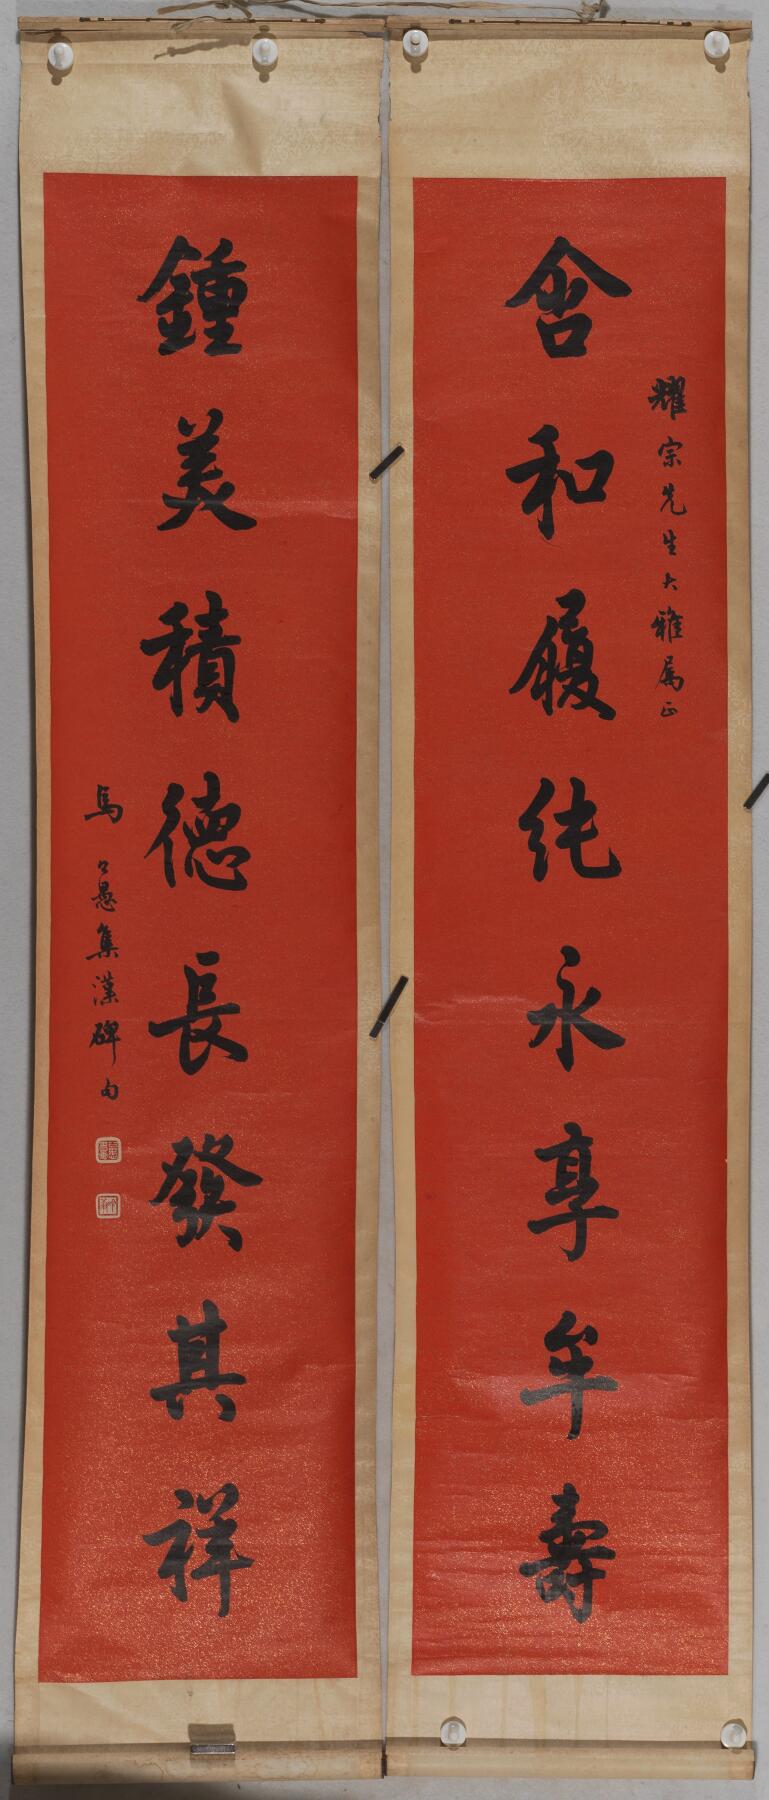 耀宗先生大雅属正
含和履纯永享牟壽
鍾美積德長發其祥
馬公愚集漢碑句